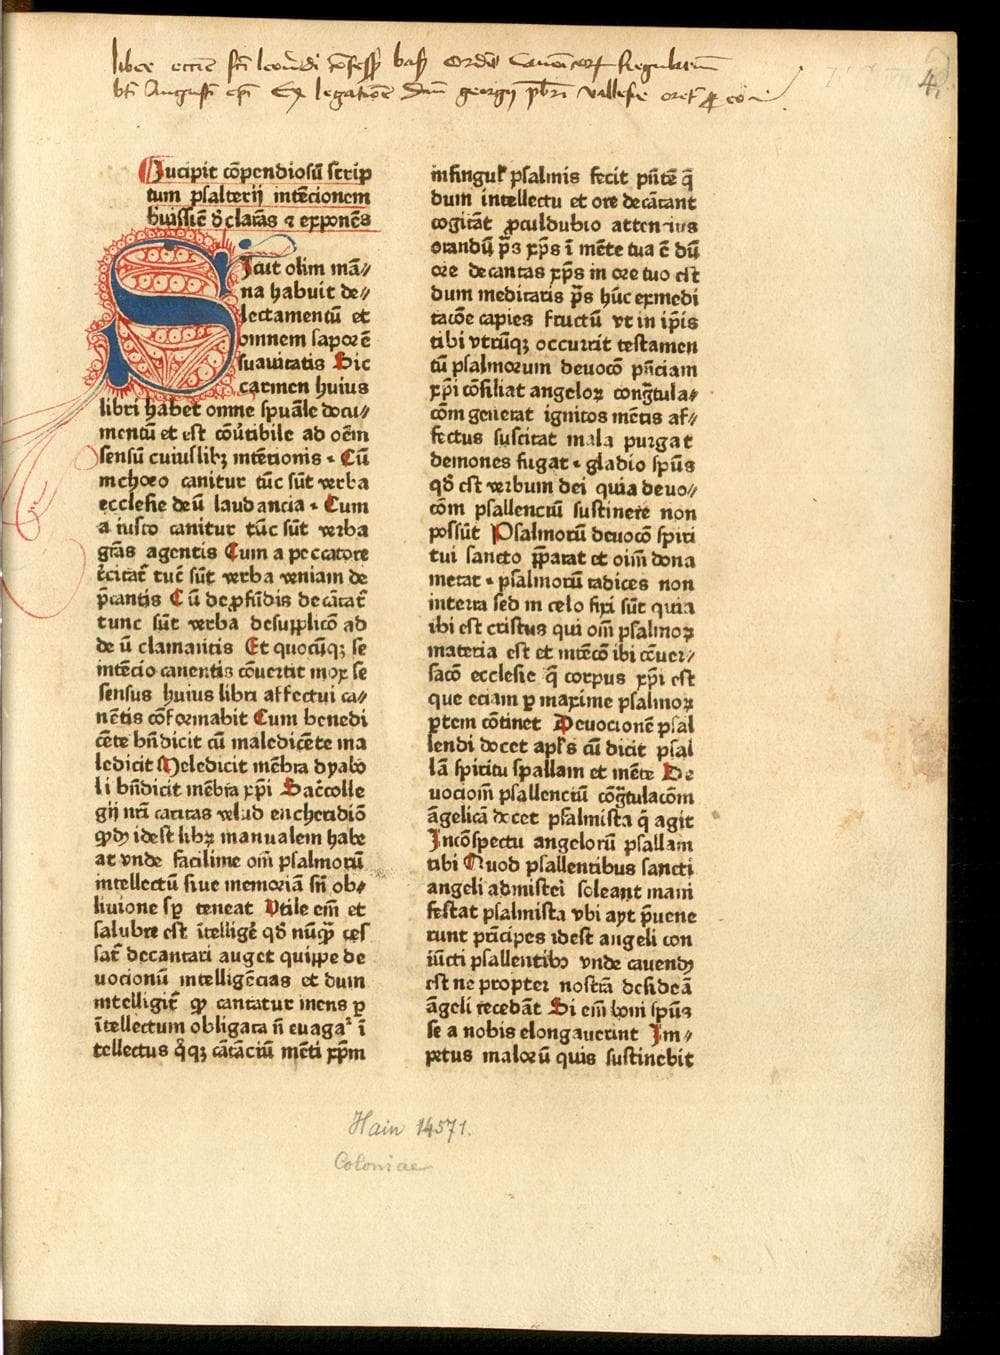 liber eccīe scti leonardi cōfess basł Ordīs Canonicorū Regularium
bti Augusti epi Ex legatione Dnī georgij pbrī vallesie oret p eo
4
Incipit cōpendiosū scrip
tum psalterij intēcionem
hūissiē dclarās ⁊ exponēs
Sicut olim mā//
na habuit de//
lectamentū et
omnem saporē
suauitatis Sic
carmen huius
libri habet omne spuāle docu//
mentū et est cōūtibile ad oēm
sensū cuiuslibꝫ intētionis · Cū
mchoeo canitur tūc sūt verba
ecclesie deū laudancia · Cum
a iusto canitur tūc sūt verba
grās agentis Cum a peccatore
rēcitat̄ tuc̄ sūt verba veniam de
p̄cantis Cū de ꝓfūdis decātat̄
tunc sūt verba desupplicō ad
deū clamantis Et quocūqꝫ se
intēcio canentis cōuertit mox se
sensus huius libri affectui ca//
nētis cōformabit Cum benedi
cēte bn̄dicit cū maledicēte ma
ledicit Meledicit mēbra dyabo
li bn̄dicit mēbra xp̄i Sac̄colle
gij nrā caritas velud encheridiō
qd idest libꝫ manualem habe
at vnde facilime oīm psalmorū
intellectū siue memoriā sn̄ ob//
liuione sp̄ teneat Vtile em̄ et
salubre est ītelligē qd̄ nūq̄ ces
sat̄ decantari auget quippe de
uocionū intelligēcias et dum
intelligit̄ qd cantatur mens p̱
ītellectum obligata n̄ euagat̄ ī
tellectus q̄qꝫ cātāciū mēti xp̄m
insingul̄ psalmis fecit pn̄tē q̄
dum intellectu et ore decātant
cogitāt ꝓculdubio attentius
orandū p̄s xp̄s ī mēte tua ē dū
ore decantas xp̄s in ore tuo est
dum meditatis p̄s hūc exmedi
tacōe capies fructū vt in ip̄is
tibi vtrūqꝫ occurrit testamen
tū psalmorum deuocō pn̄ciam
xp̄i cōsiliat angeloꝝ cong̃tula//
cōm generat ignitos mētis af//
fectus suscitat mala purgat
demones fugat · gladio spūs
qd̄ est verbum dei quia deuo//
cōm psallenciū sustinere non
possūt Psalmorū deuocō spiri
tui sancto p̄parat et oīm dona
metat · psalmorū radices non
interra sed in celo fixi sūt quia
ibi est cristus qui om̄ psalmoꝝ
materia est et intēcō ibi cōuer/
sacō ecclesie q̄ corpus xp̄i est
que eciam p̱ maxime psalmoꝝ
p̱tem cōtinet Deuocionē psal
lendi docet apl̄s cū dicit psal
lā spiritu spallam et mēte De
uociom̄ psallenciū cōg̃tulacōm
āngelicā docet psalmista q̄ agit
Incōspectu angelorū psallam
tibi Quod psallentibus sancti
angeli admistei soleant mani
festat psalmista vbi ayt p̄uene
runt prīcipes idest angeli con
iūcti psallentibꝰ vnde cauendꝫ
est ne propter nostrā desideā
āngeli recedāt Si em̄ boni spūs
se a nobis elongauerint Im//
petus malorū quis sustinebit
Hain 14571.
Coloniae